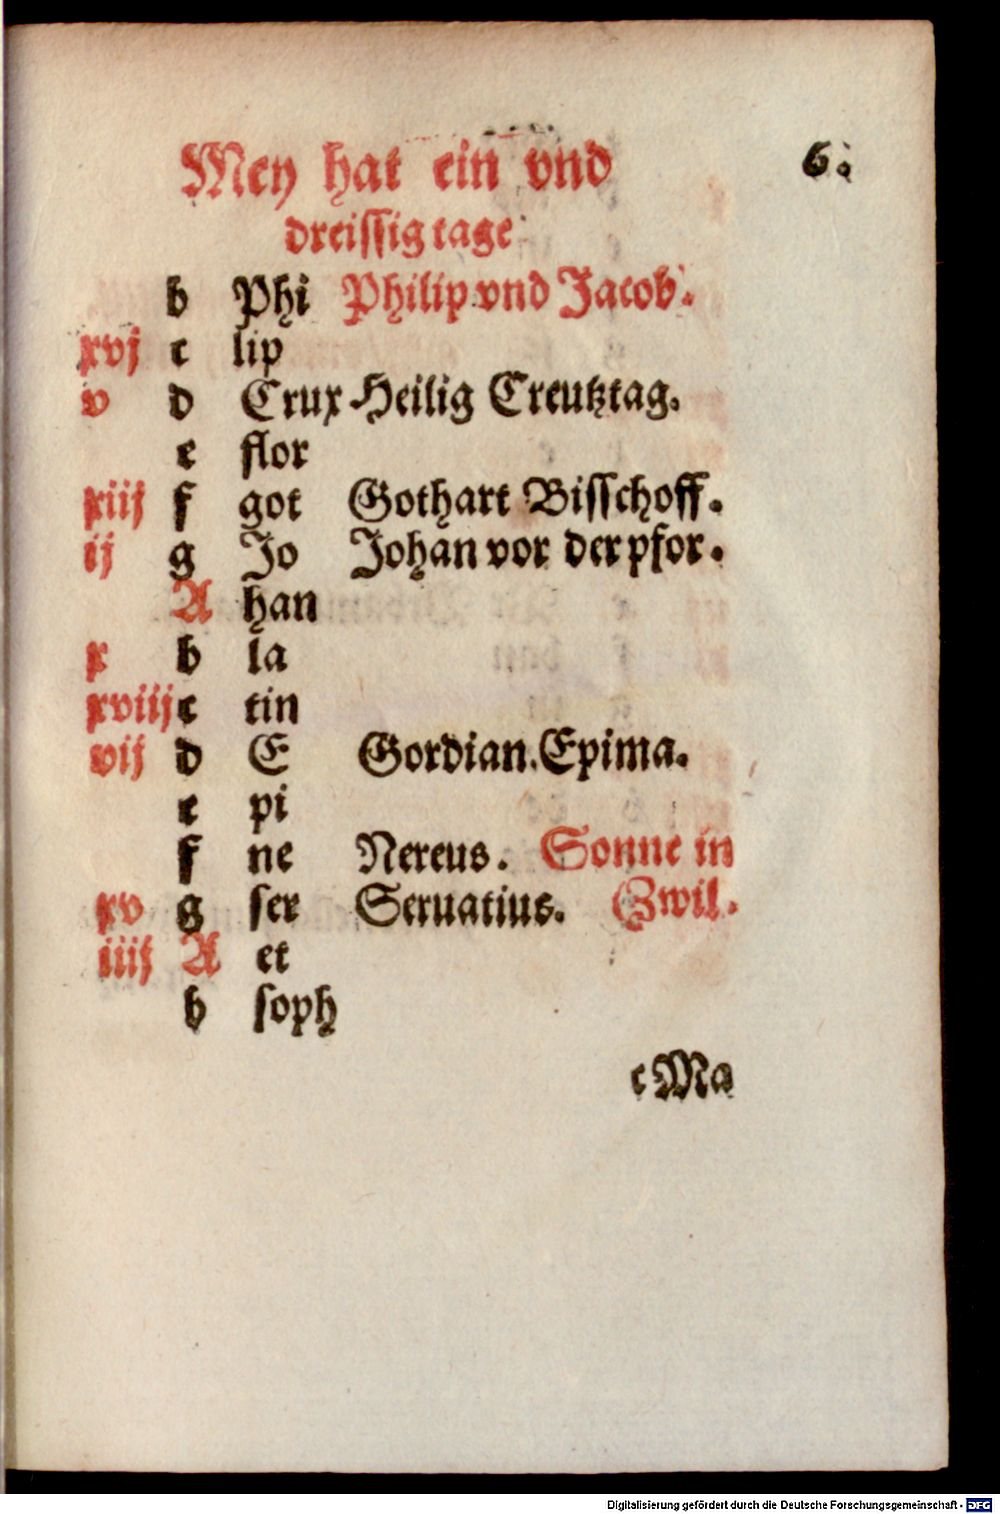 Mey hat ein vnd
6.
dreissig tage
b Phi Philip vnd Jacob.
xvj c lip
v d Crux Heilig Creutztag.
e flor
xiij f got Gothart Bisschoff.
ij g Jo Johan vor der pfor.
A han
x b la
xviij c tin
vij d E Gordian. Epima.
e pi
f ne Nereus. Sonne in
xv g ser Seruatius. (Zwil.
iiij A et
b soph
c Ma
Digitalisierung gefördert durch die Deutsche Forschungsgemeinschaft - DFG